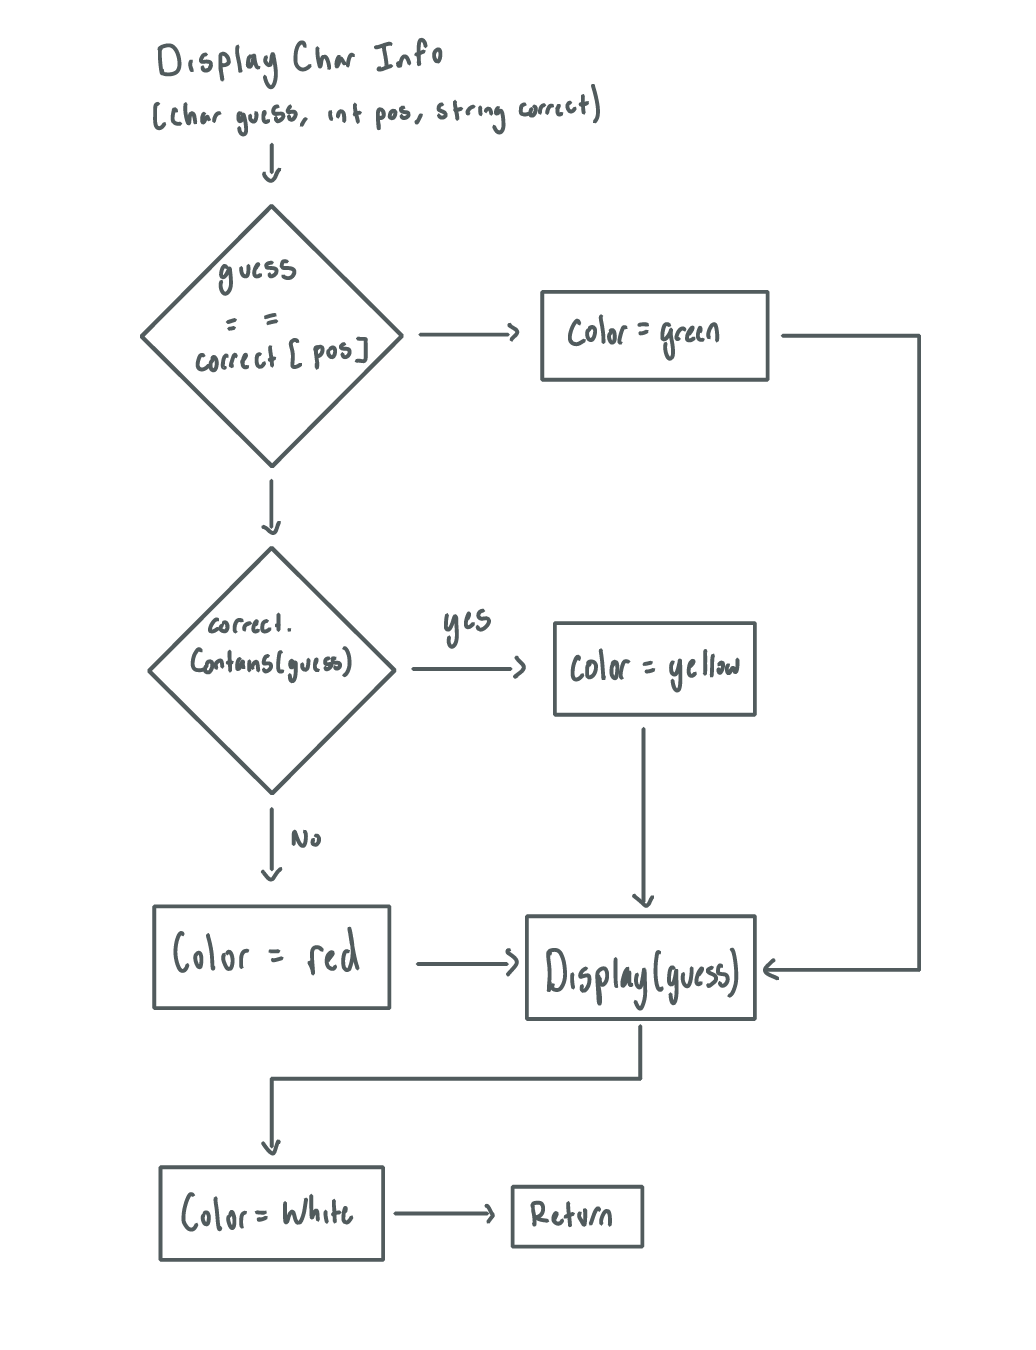 Display Char Info
(char guess, int pos, string correct)
guess
= =
correct [pos]
Color = green
correct.
Contains(guess)
yes
Color = yellow
No
Color = red
Display(guess)
Color = White
Return